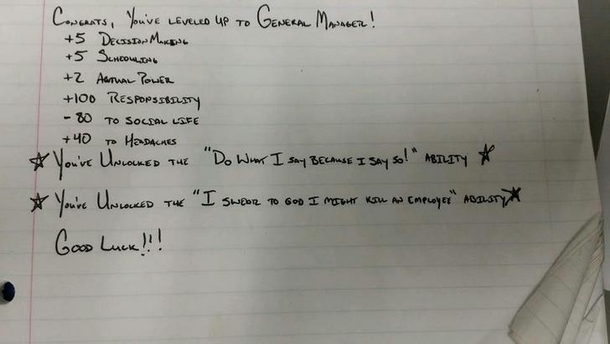 Congrats, You've leveled up to General Manager!
+5 Decision Making
+5 Scheduling
+2 Actual Power
+100 Responsibility
- 80 to social life
+40 to Headaches
☆ You've Unlocked the "Do What I say because I say so!" ability ☆
☆ You've Unlocked the "I swear to god I might kill an employee" ability ☆
Good Luck!!!